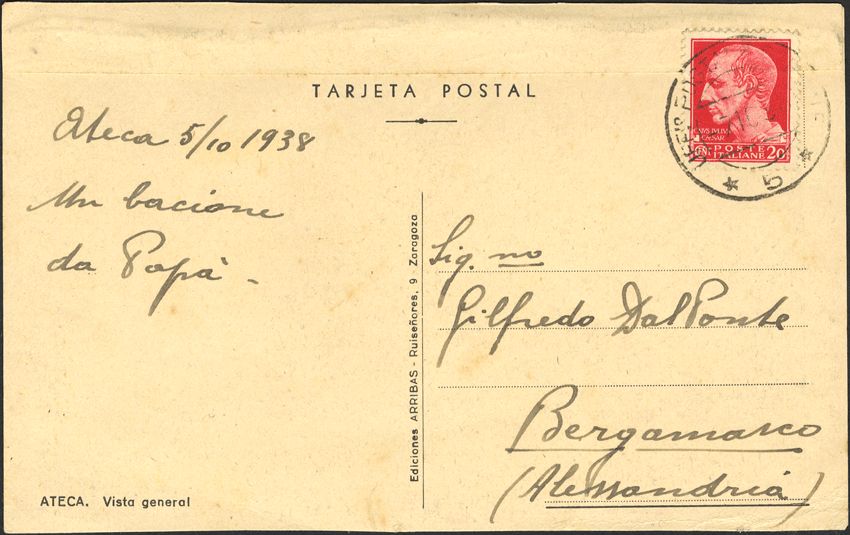 TARJETA POSTAL
Ateca 5/10 1938
Un bacione
da Papà -
ATECA. Vista general
Ediciones ARRIBAS - Ruiseñores, 9 - Zaragoza
CAIVS IVLIVS
CAESAR
POSTE
ITALIANE 20
5
Sig.no
Gilfredo Dal Ponte
Bergamasco
(Alessandria)